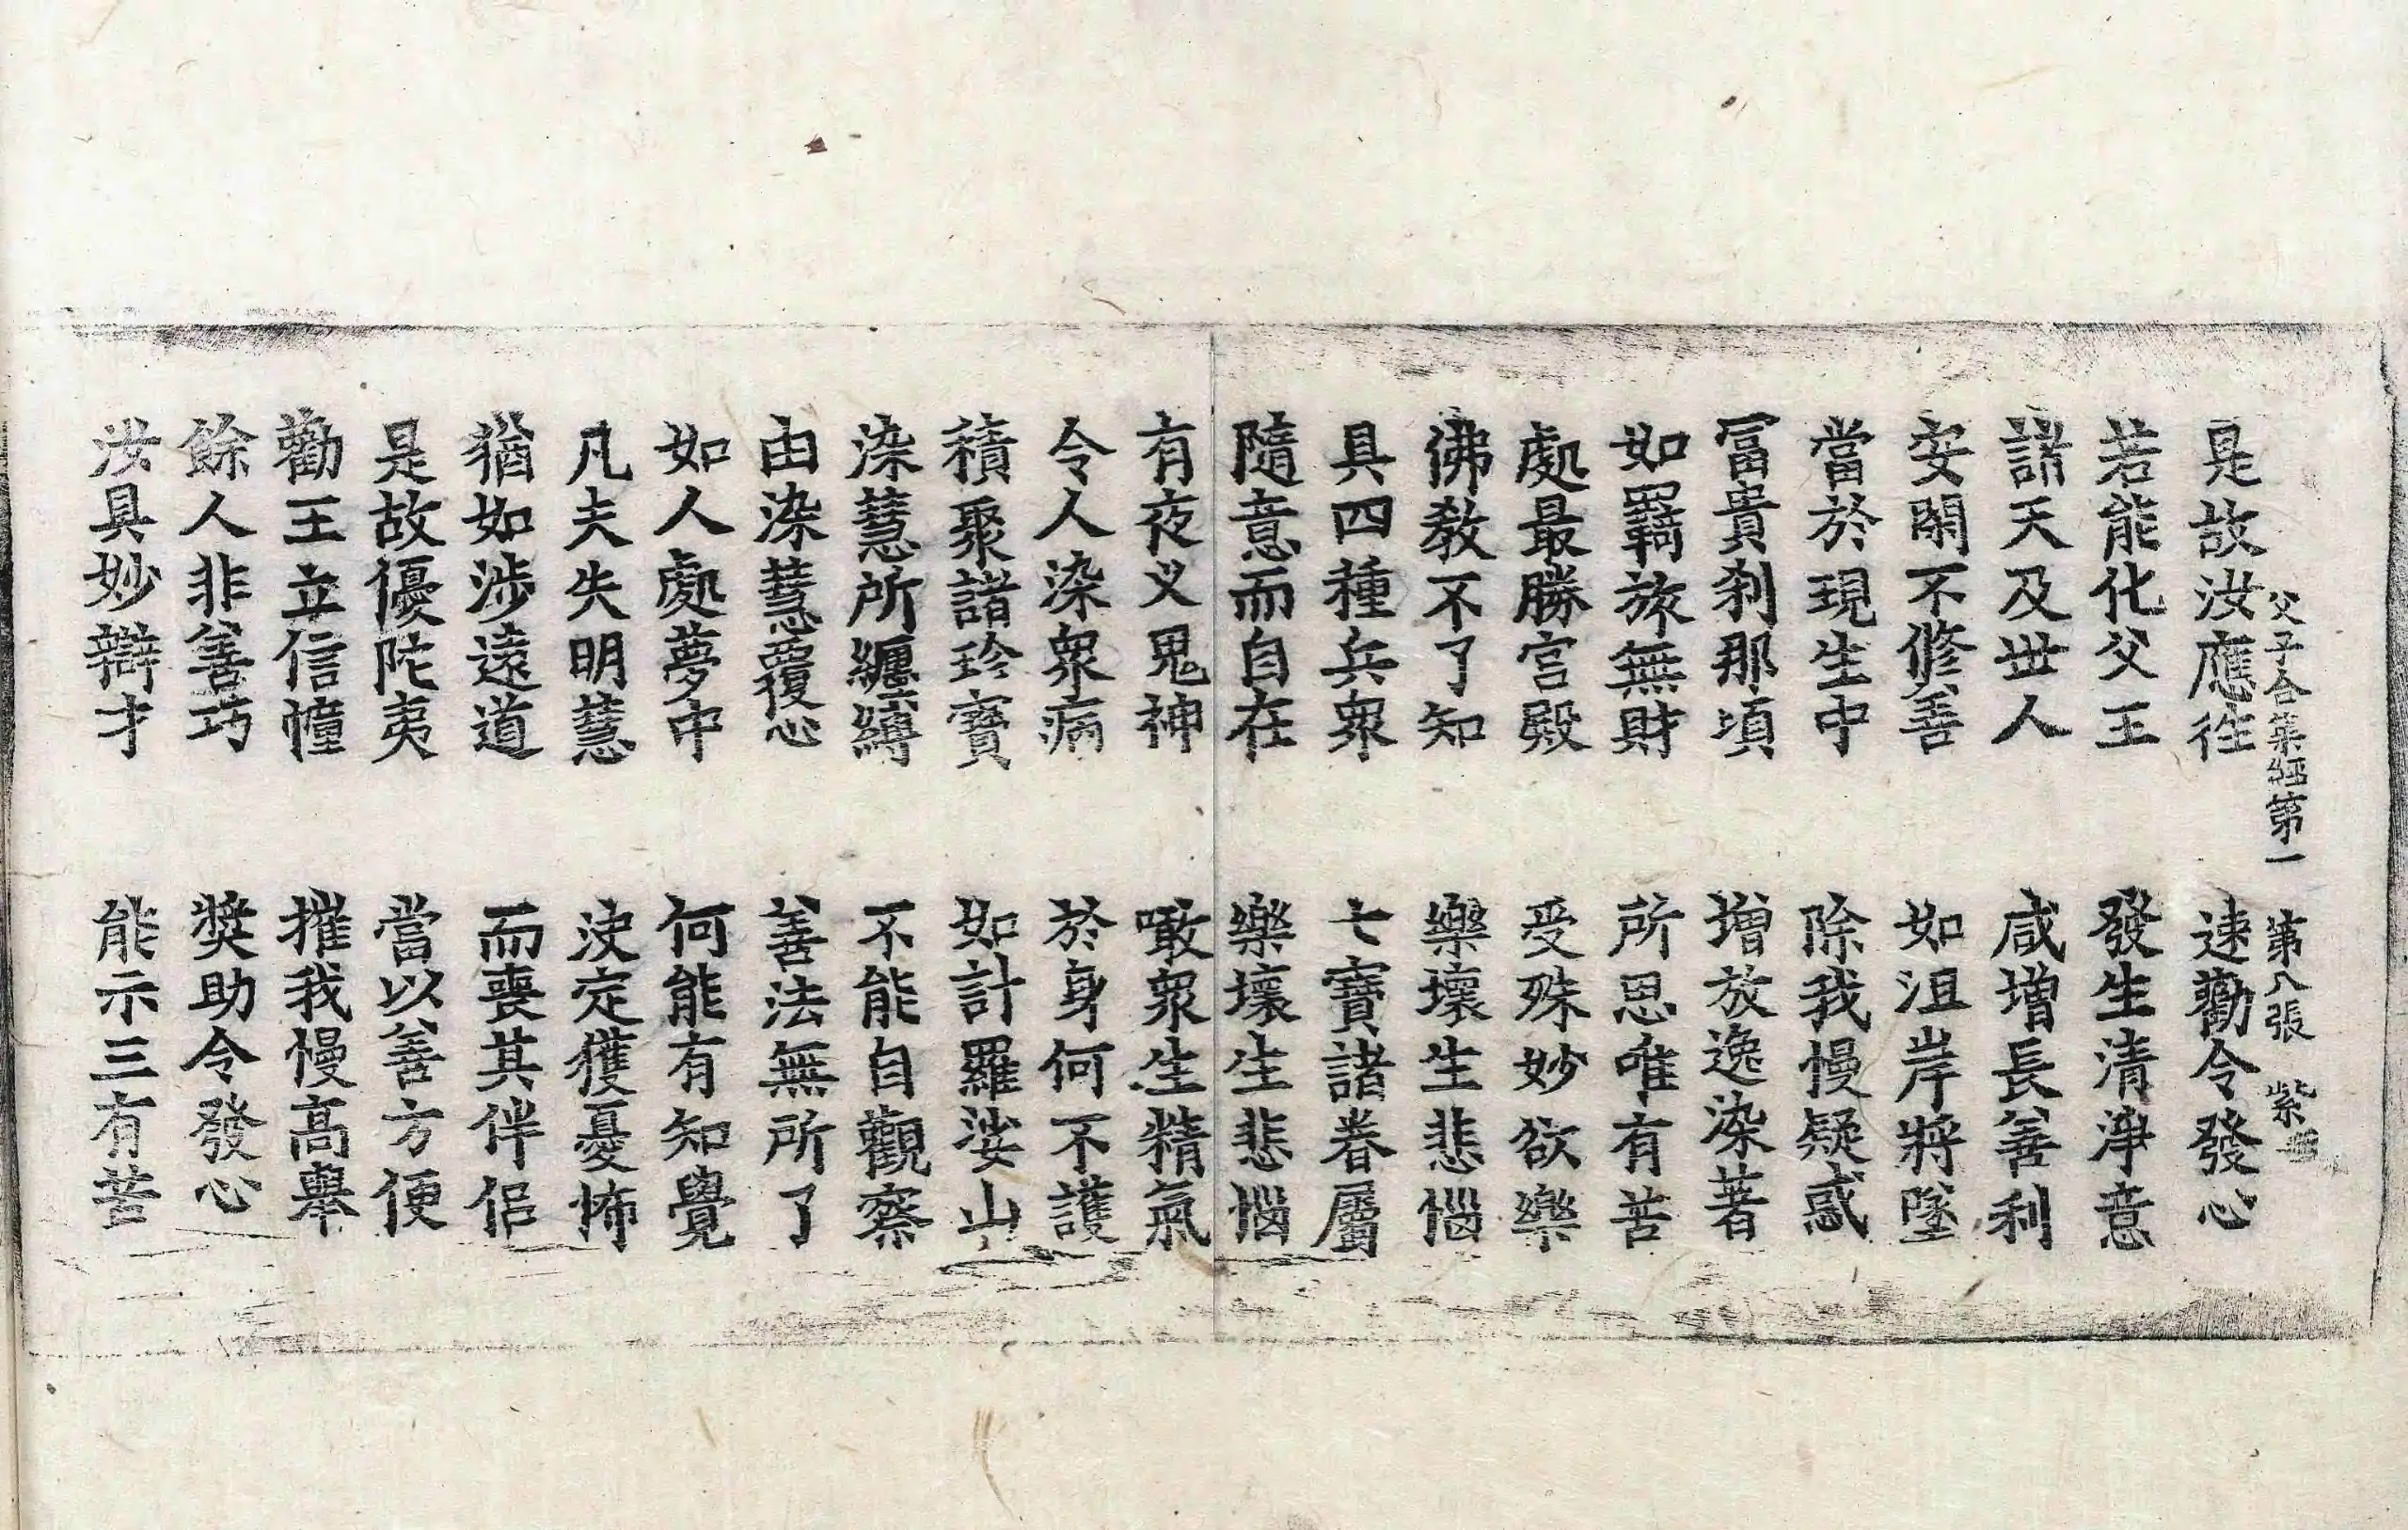 父子合集經第一 第八張 紫
是故汝應往 速勸令發心
若能化父王 發生清淨意
諸天及世人 咸增長善利
安閑不修善 如沮岸將墜
當於現生中 除我慢疑惑
冨貴刹那頃 增放逸染著
如羇旅無財 所思唯有苦
處最勝宫殿 受殊妙欲樂
佛教不了知 樂壞生悲惱
具四種兵衆 七寶諸眷屬
隨意而自在 樂壞生悲惱
有夜义鬼神 噉衆生精氣
令人染衆病 於身何不護
積聚諸珍寶 如計羅娑山
染慧所纏縛 不能自觀察
由染慧覆心 善法無所了
如人處夢中 何能有知覺
凡夫失明慧 決定獲憂怖
猶如涉遠道 而喪其伴侶
是故優陀夷 當以善方便
勸王立信幢 摧我慢高舉
餘人非善巧 奬助令發心
汝具妙辯才 能示三有苦